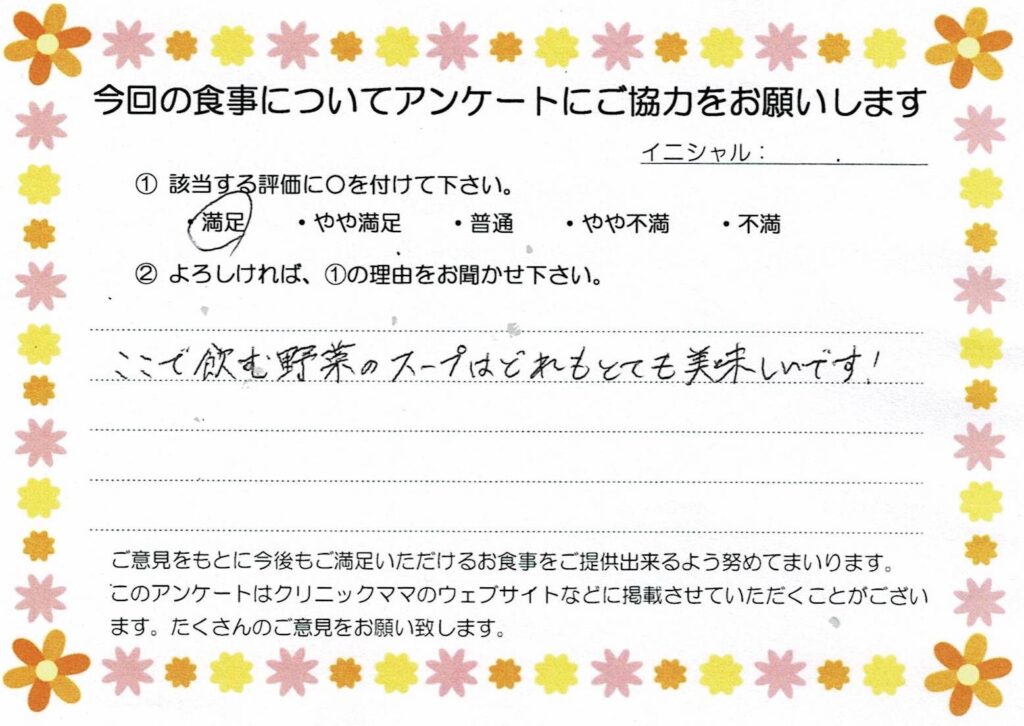 今回の食事についてアンケートにご協力をお願いします
イニシャル： .
① 該当する評価に〇を付けて下さい。
・満足 ・やや満足 ・普通 ・やや不満 ・不満
② よろしければ、①の理由をお聞かせ下さい。
ここで飲む野菜のスープはどれもとても美味しいです！
ご意見をもとに今後もご満足いただけるお食事をご提供出来るよう努めてまいります。
このアンケートはクリニックママのウェブサイトなどに掲載させていただくことがござい
ます。たくさんのご意見をお願い致します。